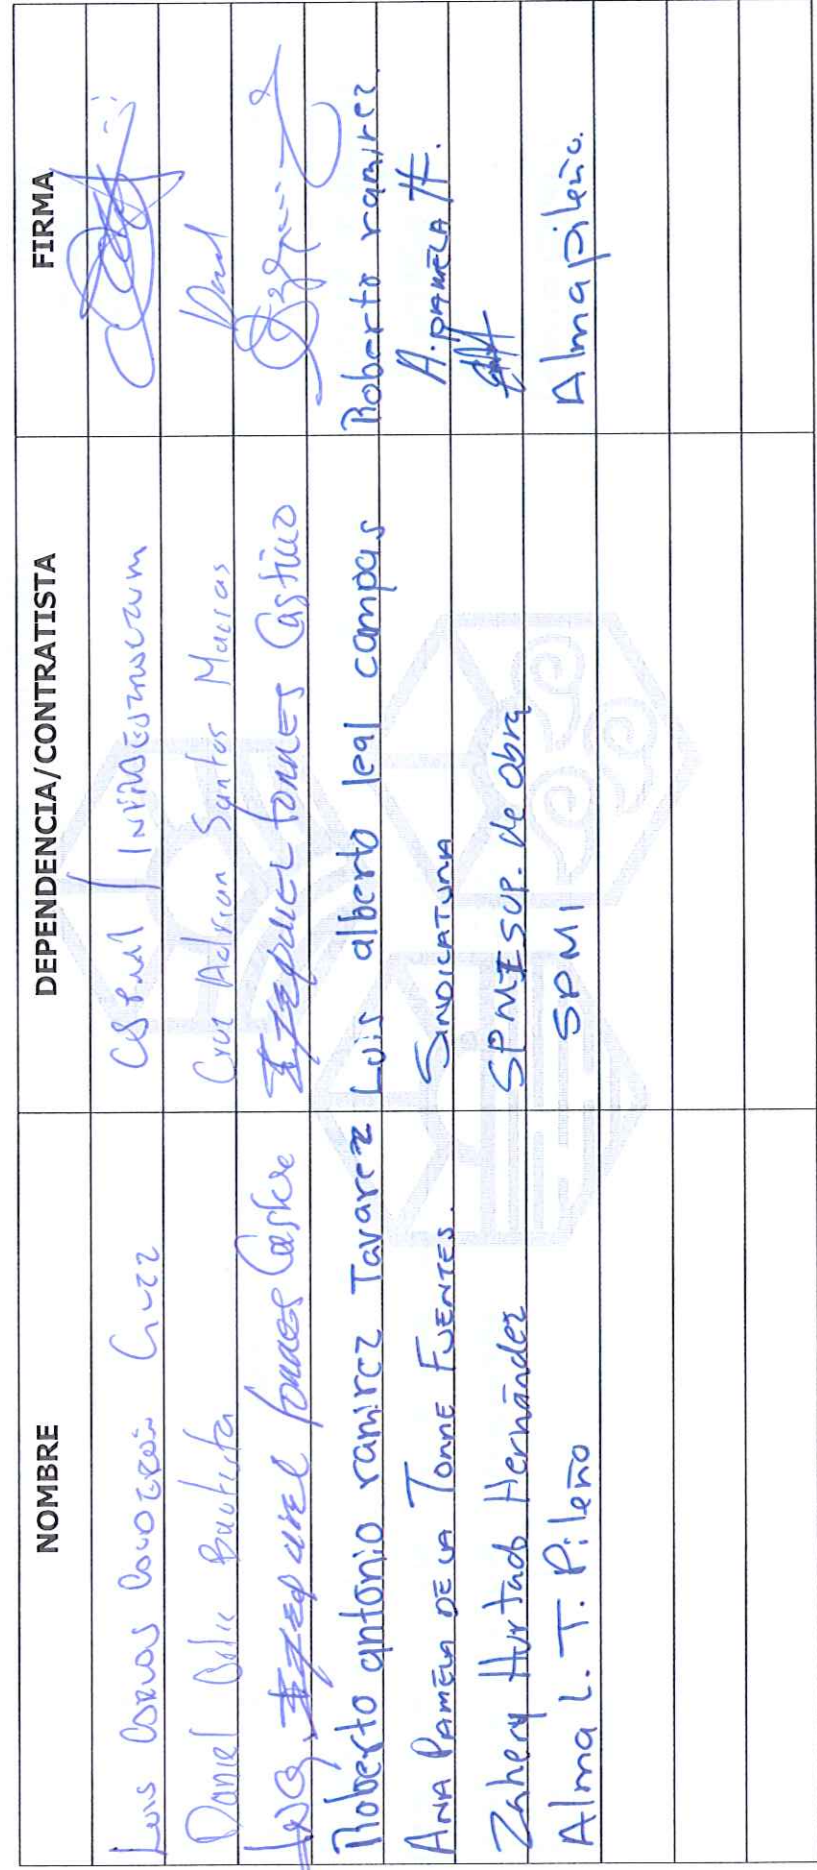 NOMBRE DEPENDENCIA/CONTRATISTA FIRMA
Luis Cruz
Daniel Bautista Cruz Adrian Santos Macias
ING. Torres Torres Castillo
Roberto antonio ramirez Tavarez Luis alberto leal campas Roberto ramirez
ANA PAMELA DE LA TORRE FUENTES. SINDICATURA A. PAMELA
Zahery Hurtado Hernández SPMI SUP. de obra
Alma L. T. Pileño SPMI Alma pileño.